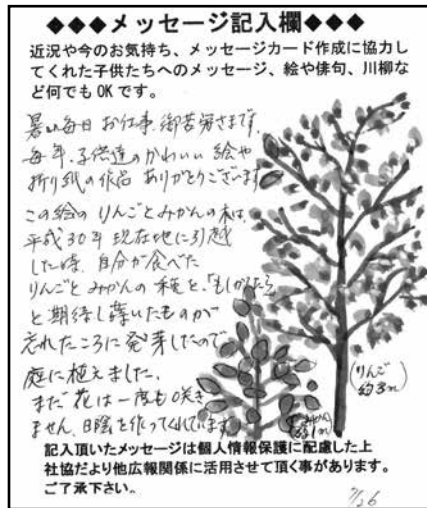 ◆◆◆メッセージ記入欄◆◆◆
近況や今のお気持ち、メッセージカード作成に協力し
てくれた子供たちへのメッセージ、絵や俳句、川柳な
ど何でもOKです。
暑い毎日 お仕事 御苦労さまです。
毎年、子供達のかわいい絵や
折り紙の作品 ありがとうございます
この絵の りんごとみかんの木は、
平成30年 現在地に引越
した時、自分が食べた
りんごとみかんの種を、「もしかしたら」
と期待し蒔いたものが
忘れたころに発芽したので
庭に植えました。
まだ花は一度も咲き
ません。日陰を作ってくれています
(りんご
約3m)
(みかん
約1m)
記入頂いたメッセージは個人情報保護に配慮した上
社協だより他広報関係に活用させて頂く事があります。
ご了承下さい。
7/26